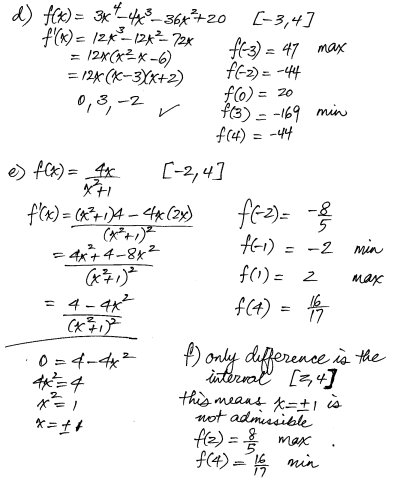 d) f(x) = 3x⁴-4x³-36x²+20 [-3,4]
f'(x) = 12x³-12x²-72x
= 12x(x²-x-6)
= 12x(x-3)(x+2)
0, 3, -2 ✓
f(-3) = 47 max
f(-2) = -44
f(0) = 20
f(3) = -169 min
f(4) = -44
e) f(x) = 4x/(x²+1) [-2,4]
f'(x) = ((x²+1)4 - 4x(2x))/(x²+1)²
= (4x²+4-8x²)/(x²+1)²
= (4-4x²)/(x²+1)²
0 = 4-4x²
4x² = 4
x² = 1
x = ±1
f(-2) = -8/5
f(-1) = -2 min
f(1) = 2 max
f(4) = 16/17
f) only difference is the
interval [2,4]
this means x=±1 is
not admissible
f(2) = 8/5 max.
f(4) = 16/17 min